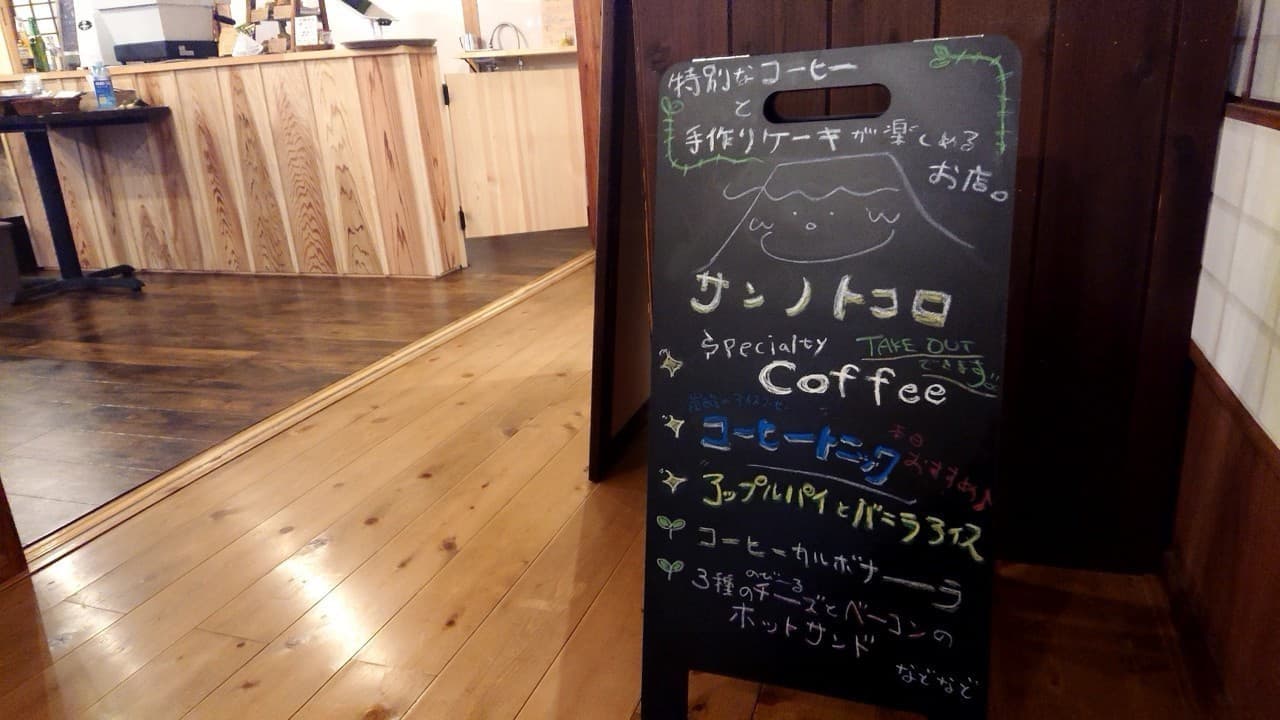 特別なコーヒー
と
手作りケーキが楽しめる
お店。
サンノトコロ
Specialty
TAKE OUT
できます
Coffee
コーヒートニック
本日
おすすめ♪
アップルパイとバニラアイス
コーヒーカルボナーーラ
のび〜る
3種のチーズとベーコンの
ホットサンド
などなど